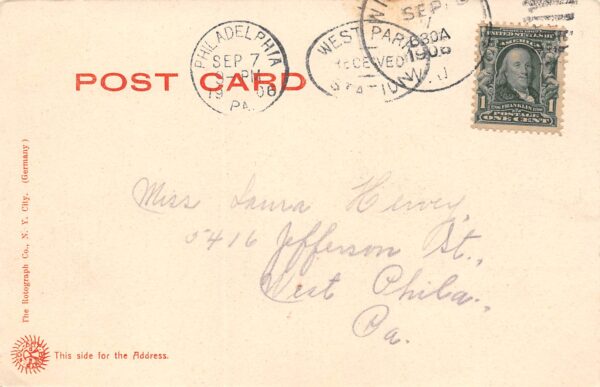 POST CARD
PHILADELPHIA
SEP 7
PM
1906
PA.
WEST PARK
RECEIVED
STATION
SEP
830A
1906
N.J.
UNITED STATES OF
AMERICA
1 FRANKLIN 1
POSTAGE
ONE CENT
Miss Laura Hervey,
5416 Jefferson St.,
West Phila.,
Pa.
The Rotograph Co., N. Y. City. (Germany)
This side for the Address.